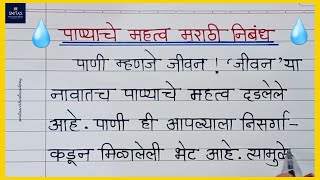 पाण्याचे महत्व मराठी निबंध
पाणी म्हणजे जीवन ! 'जीवन' या
नावातच पाण्याचे महत्व दडलेले
आहे. पाणी ही आपल्याला निसर्गा-
कडून मिळालेली भेट आहे. त्यामुळे